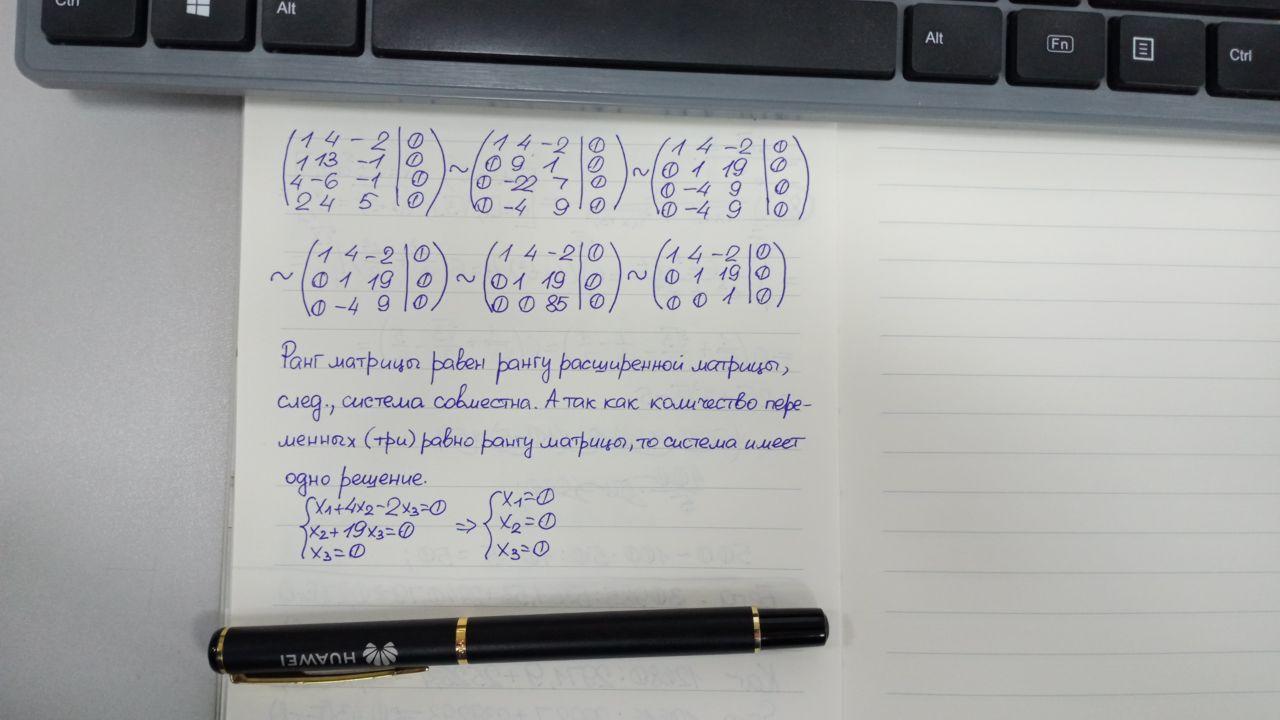 Ctrl Alt Alt Fn Ctrl
(1 4 -2 | 0) (1 4 -2 | 0) (1 4 -2 | 0)
(1 13 -1 | 0) ~ (0 9 1 | 0) ~ (0 1 19 | 0)
(4 -6 -1 | 0) (0 -22 7 | 0) (0 -4 9 | 0)
(2 4 5 | 0) (0 -4 9 | 0) (0 -4 9 | 0)
(1 4 -2 | 0) (1 4 -2 | 0) (1 4 -2 | 0)
~ (0 1 19 | 0) ~ (0 1 19 | 0) ~ (0 1 19 | 0)
(0 -4 9 | 0) (0 0 85 | 0) (0 0 1 | 0)
Ранг матрицы равен рангу расширенной матрицы,
след., система совместна. А так как количество пере-
менных (три) равно рангу матрицы, то система имеет
одно решение.
{x1+4x2-2x3=0 {x1=0
{x2+19x3=0 => {x2=0
{x3=0 {x3=0
HUAWEI